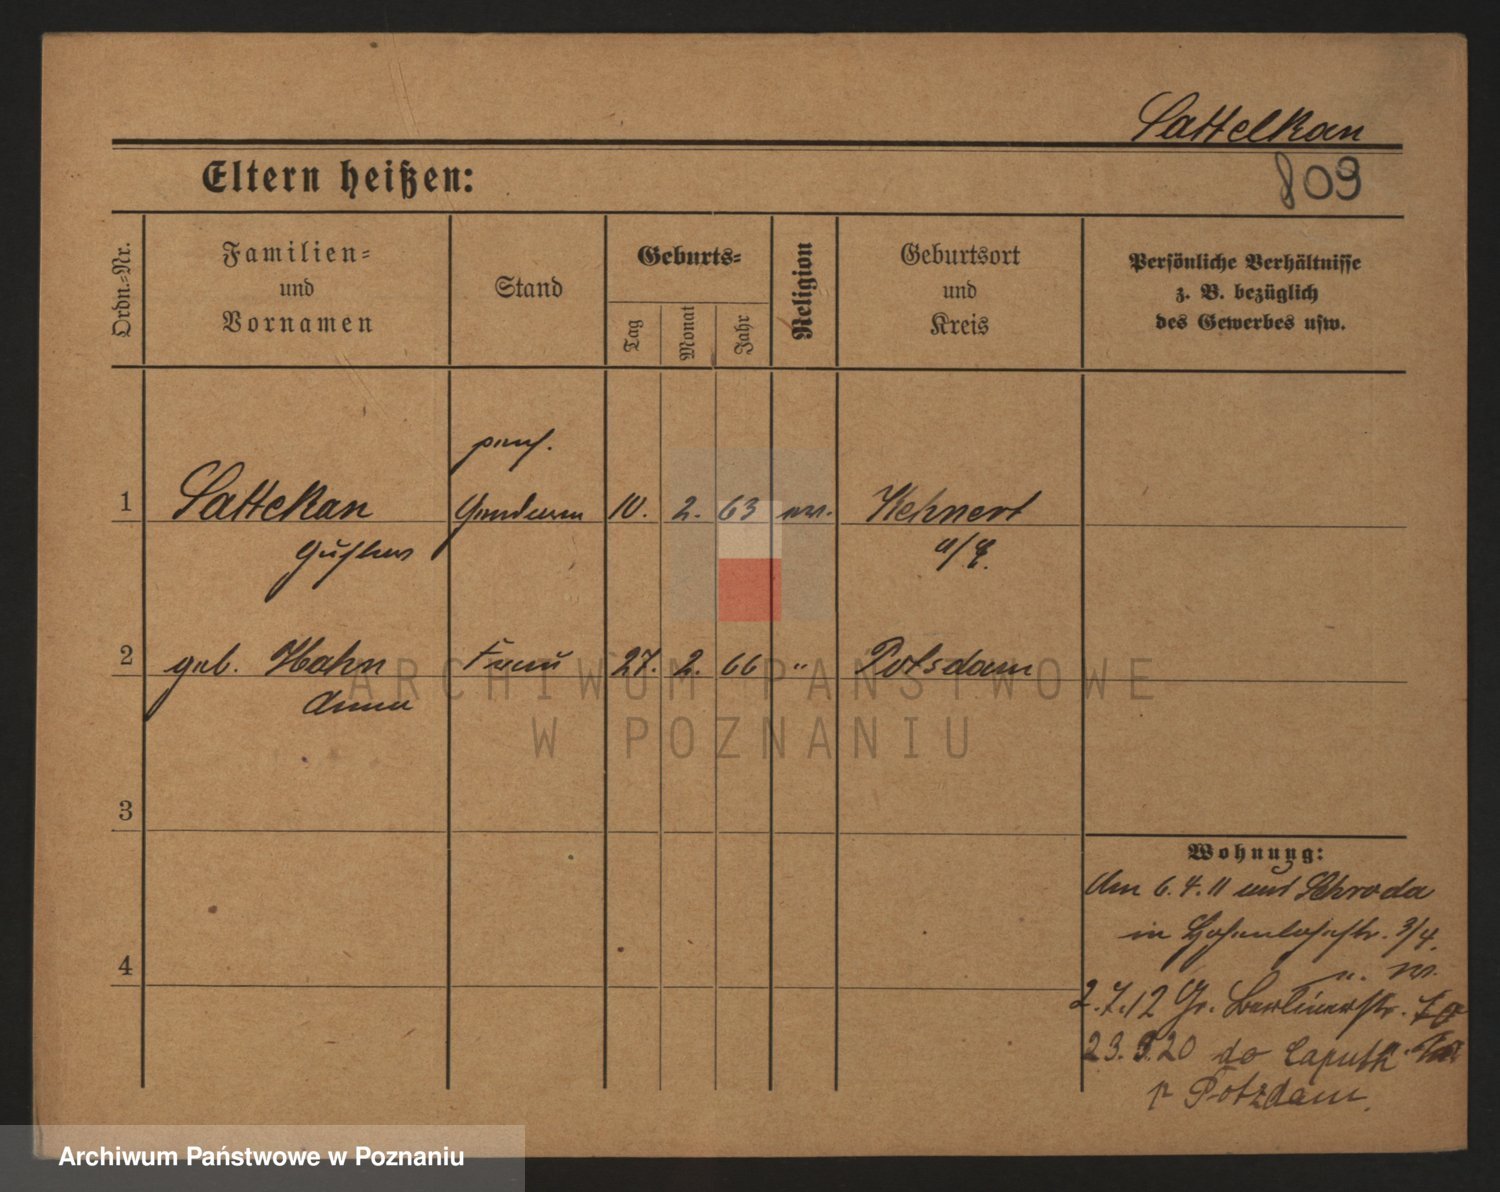 Sattelkau
809
Eltern heißen:
Ordn.=Nr.
Familien=
und
Vornamen
Stand
Geburts=
Tag
Monat
Jahr
Religion
Geburtsort
und
Kreis
Persönliche Verhältnisse
z. B. bezüglich
des Gewerbes usw.
pens.
1 Sattelkau Gendarm 10. 2. 63 ev. Wehnert
Gustav
2 geb. Hahn Frau 27. 2. 66 " Potsdam
Anna
3
4
Wohnung:
Am 6.4.11 aus Schroda
in Hohenlohestr. 3/4.
2.7.12 Gr. Berlinerstr.
23. 20 do Caputh
p Potzdam.
ARCHIWUM PAŃSTWOWE
W POZNANIU
Archiwum Państwowe w Poznaniu